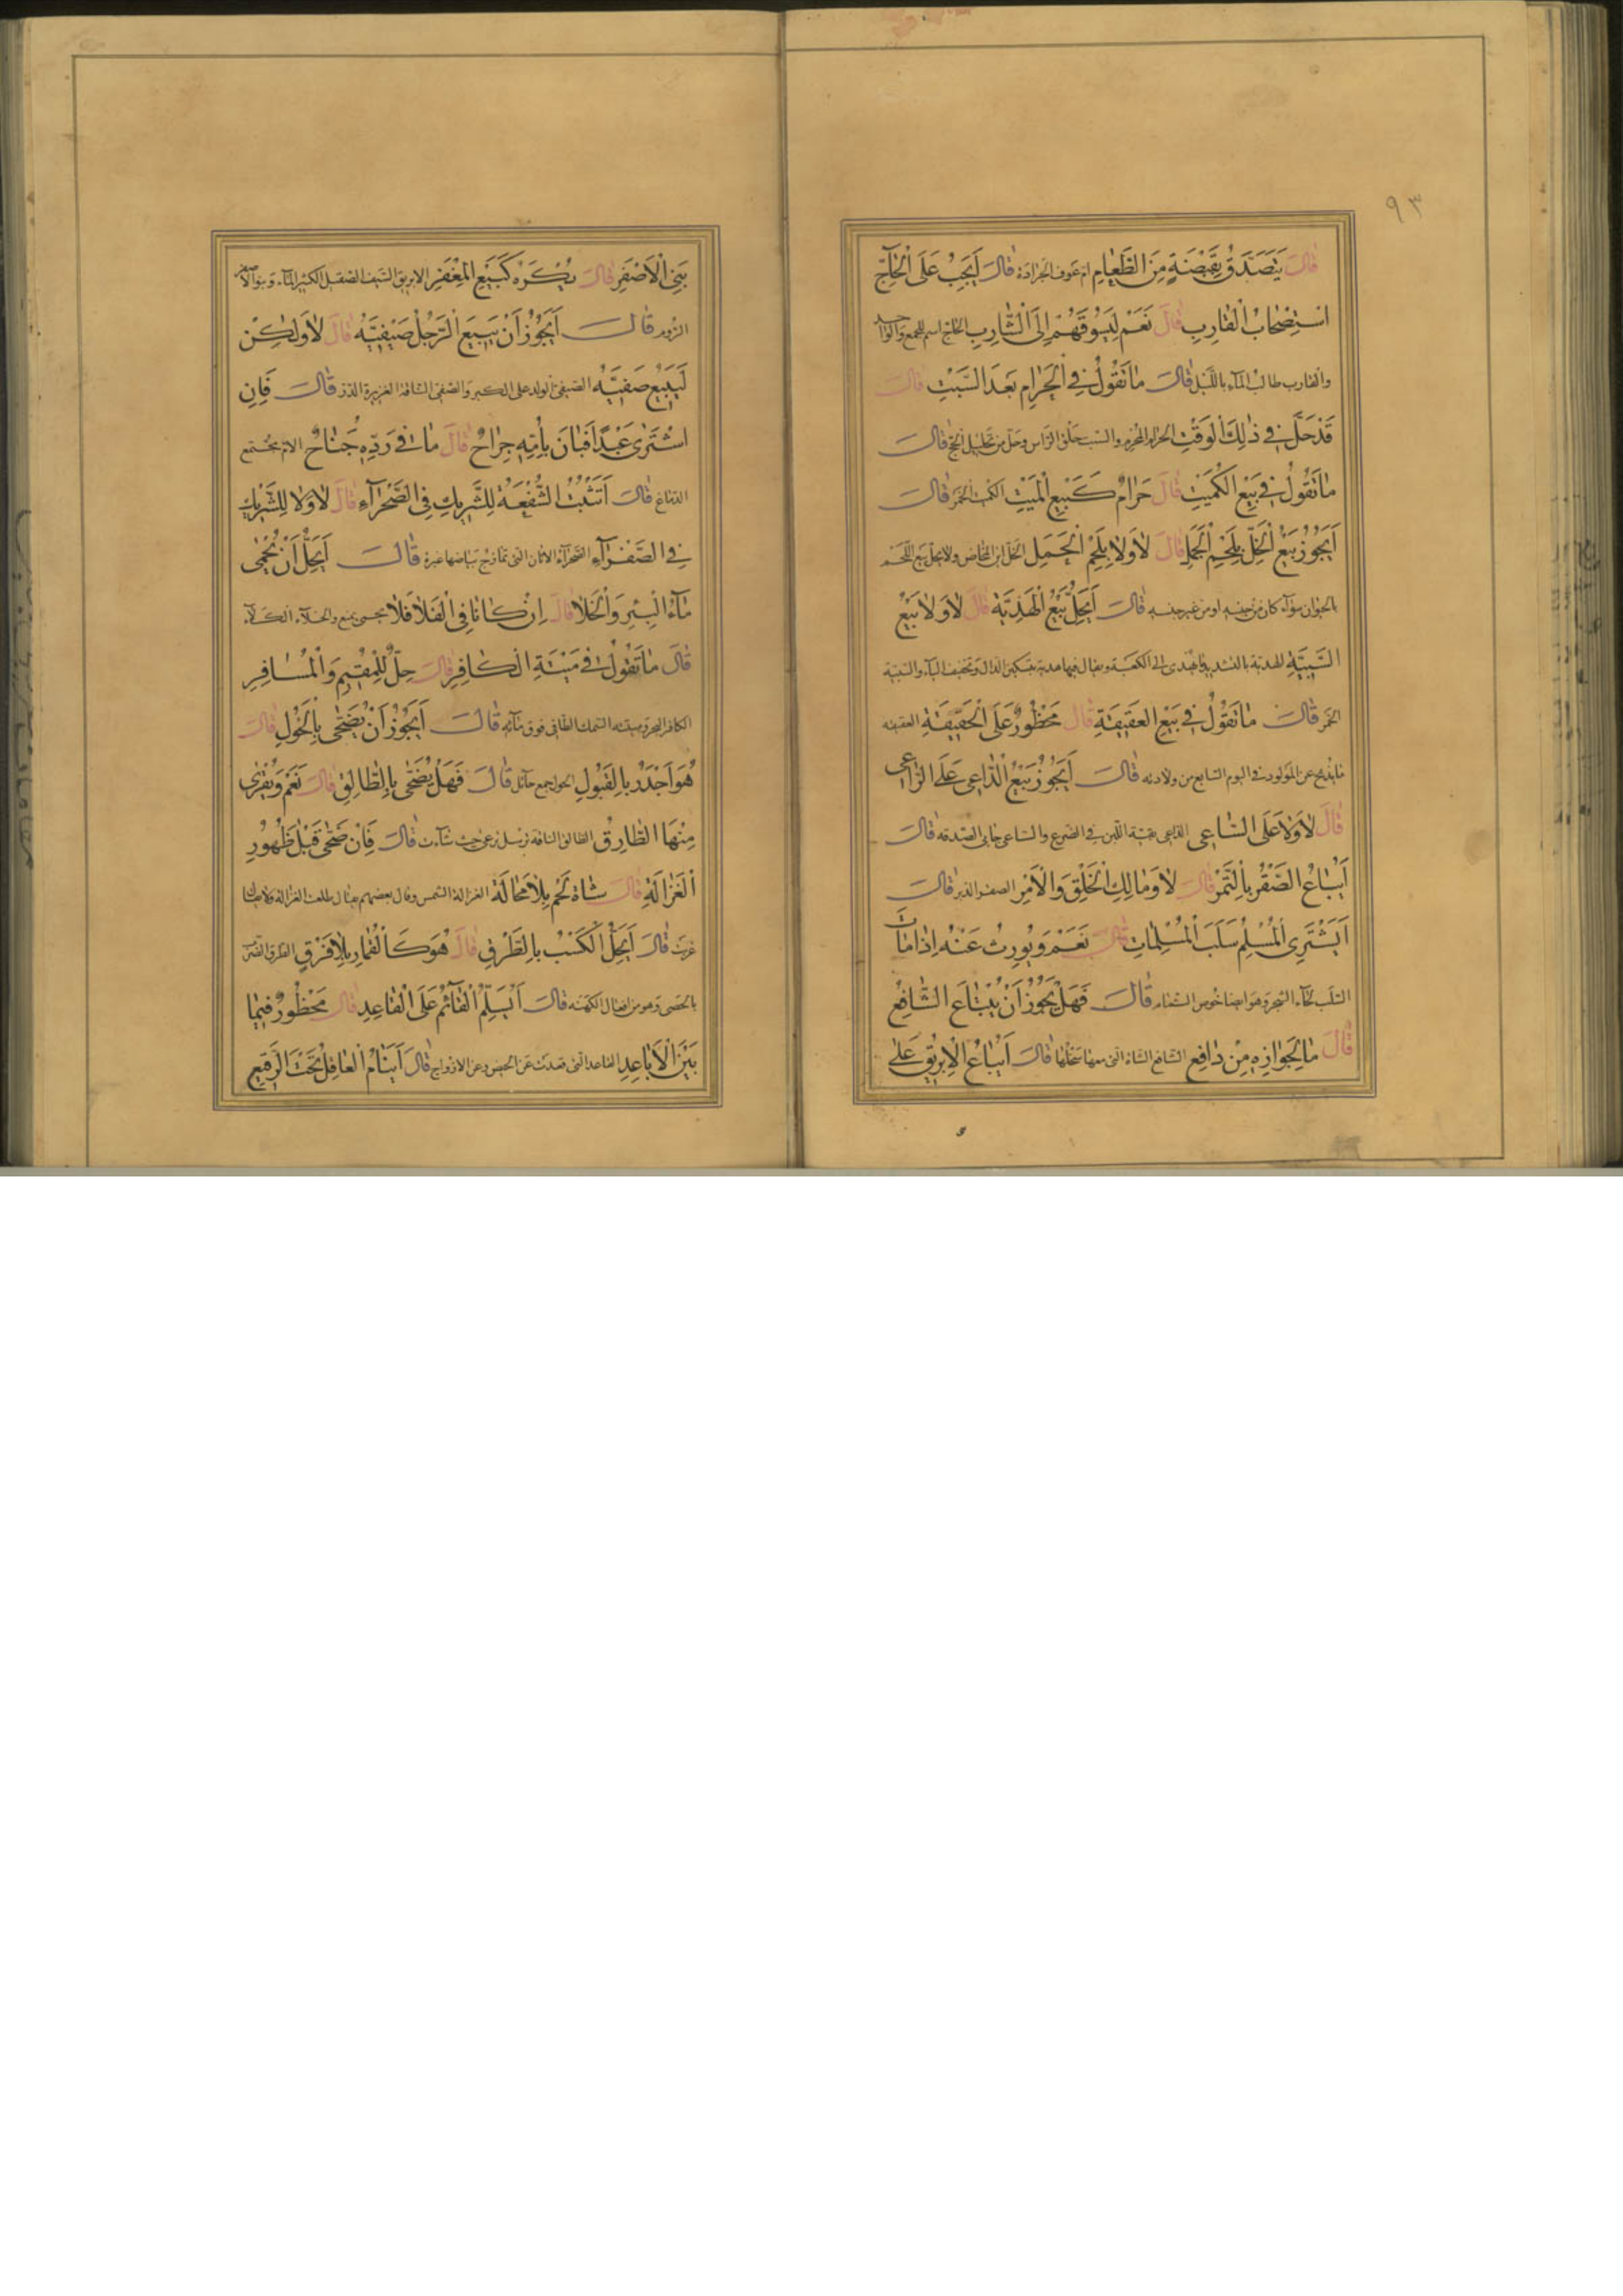 ٩٣
قَالَ يَتَصَدَّقُ بِقَبْضَةٍ مِنَ الطَّعَامِ ام عوف الجرادة قَالَ اَيَجِبُ عَلَى الْحَاجِّ
اسْتِصْحَابُ الْقَارِبِ قَالَ نَعَمْ لِيَسُوقَهُمْ اِلَى الشَّارِبِ الحاج اسم للجمع والواحد
والقارب طالب المآء بالليل قَالَ مَا تَقُولُ فِي الْحَرَامِ بَعْدَ السَّبْتِ قَالَ
قَدْ حَلَّ فِي ذٰلِكَ الْوَقْتِ الحرام المحرم والسبت حلق الرأس وحل من تحليل الحج قَالَ
مَا تَقُولُ فِي بَيْعِ الْكُمَيْتِ قَالَ حَرَامٌ كَبَيْعِ الْمَيْتِ الكميت الخمر قَالَ
اَيَجُوزُ بَيْعُ الْخَلِّ بِلَحْمِ الْجَمَلِ قَالَ لَا وَلَا بِلَحْمِ الْحَمَلِ الخل ابن المخاض ولا يحل بيع اللحم
بالحيوان سوآء كان من جنسه او من غير جنسه قَالَ اَيَحِلُّ بَيْعُ الْهَدِيَّةِ قَالَ لَا وَلَا بَيْعُ
السَّبِيَّةِ الهدية بالتشديد ما يهدى الى الكعبة ويقال فيها هدية بتسكين الدال وتخفيف اليآء والسبية
الخمر قَالَ مَا تَقُولُ فِي بَيْعِ الْعَقِيقَةِ قَالَ مَحْظُورٌ عَلَى الْحَقِيقَةِ العقيقه
ما يذبح عن المولود في اليوم السابع من ولادته قَالَ اَيَجُوزُ بَيْعُ الدَّاعِي عَلَى الرَّاعِي
قَالَ لَا وَلَا عَلَى السَّاعِي الداعى بقية اللبن في الضرع والساعى جابى الصدقه قَالَ
اَيُبَاعُ الصَّقْرُ بِالتَّمْرِ قَالَ لَا وَمَالِكِ الْخَلْقِ وَالْاَمْرِ الصقر الدبس قَالَ
اَيَشْتَرِي الْمُسْلِمُ سَلَبَ الْمُسْلِمَاتِ قَالَ نَعَمْ وَيُورَثُ عَنْهُ اِذَا مَاتَ
السلب لحآء الشجر وهو ايضا خوص الثمام قَالَ فَهَلْ يَجُوزُ اَنْ يُبْتَاعَ الشَّافِعُ
قَالَ مَا لِجَوَازِهِ مِنْ دَافِعٍ الشافع الشاة التى معها سخلها قَالَ اَيُبَاعُ الْاِبْرِيقُ عَلَى
بَنِي الْاَصْفَرِ قَالَ يُكْرَهُ كَبَيْعِ الْمِغْفَرِ الابريق السيف الصقيل الكثير المآء وبنو الاصفر
الروم قَالَ اَيَجُوزُ اَنْ يَبِيعَ الرَّجُلُ صَيْفِيَّهُ قَالَ لَا وَلٰكِنْ
لِيَبِيعَ صَفِيَّهُ الصيفى الولد على الكبر والصفى الناقة الغزيرة الدر قَالَ فَاِنِ
اشْتَرَى عَبْدًا فَبَانَ بِاُمِّهِ جِرَاحٌ قَالَ مَا فِي رَدِّهِ جُنَاحٌ الام مجتمع
الدماغ قَالَ اَتَثْبُتُ الشُّفْعَةُ لِلشَّرِيكِ فِي الصَّحْرَآءِ قَالَ لَا وَلَا لِلشَّرِيكِ
فِي الصَّفْرَآءِ الصحرآء الاتان التى تمازج بياضها غبرة قَالَ اَيَحِلُّ اَنْ يُحْمَى
مَآءُ الْبِئْرِ وَالْخَلَا قَالَ اِنْ كَانَا فِي الْفَلَا فَلَا يحمى يمنع والخلآء الكلاء
قَالَ مَا تَقُولُ فِي مَيْتَةِ الْكَافِرِ قَالَ حِلٌّ لِلْمُقِيمِ وَالْمُسَافِرِ
الكافر البحر وميتته السمك الطافى فوق مآئه قَالَ اَيَجُوزُ اَنْ يُضَحَّى بِالْحُولِ قَالَ
هُوَ اَجْدَرُ بِالْقَبُولِ الحول جمع حآئل قَالَ فَهَلْ يُضَحَّى بِالطَّالِقِ قَالَ نَعَمْ وَيُقْرَى
مِنْهَا الطَّارِقُ الطالق الناقة ترسل ترعى حيث شآءت قَالَ فَاِنْ ضَحَّى قَبْلَ ظُهُورِ
الْغَزَالَةِ قَالَ شَاةُ لَحْمٍ بِلَا مَحَالَةَ الغزالة الشمس وقال بعضهم يقال طلعت الغزالة ولا يقال
غربت قَالَ اَيَحِلُّ الْكَسْبُ بِالطَّرْقِ قَالَ هُوَ كَالْقِمَارِ بِلَا فَرْقٍ الطرق الضرب
بالحصى وهو من افعال الكهنه قَالَ اَيُسَلِّمُ الْقَآئِمُ عَلَى الْقَاعِدِ قَالَ مَحْظُورٌ فِيمَا
بَيْنَ الْاَبَاعِدِ القاعد التى قعدت عن الحيض وعن الازواج قَالَ اَيَنَامُ الْعَاقِلُ تَحْتَ الرَّقِيعِ